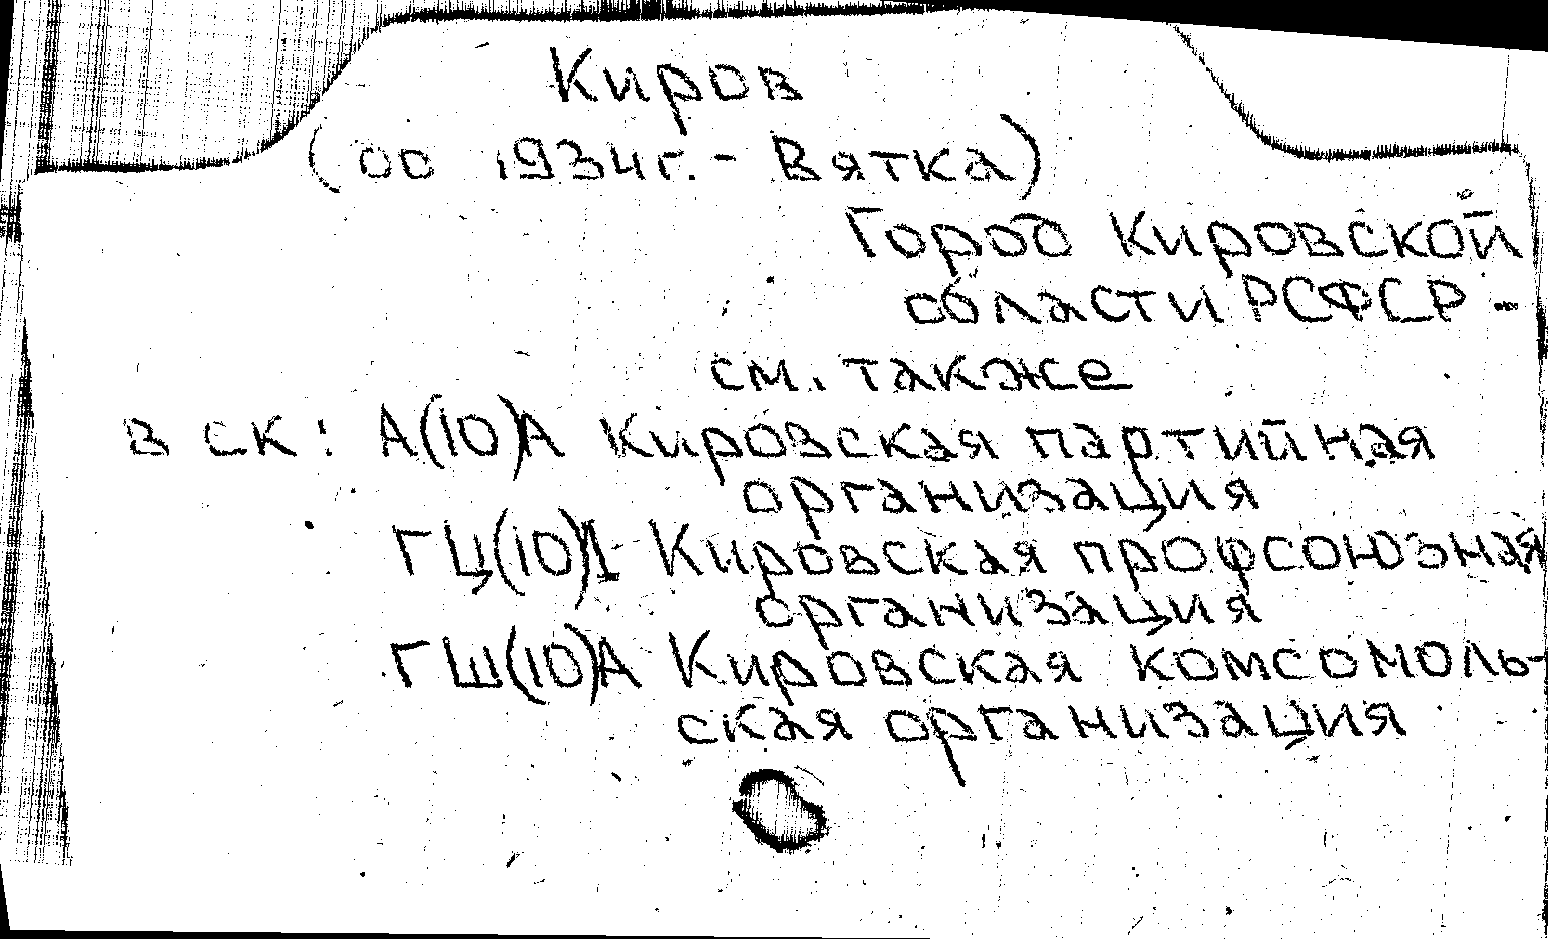 Киров
(до 1934г. - Вятка)
Город Кировской
области РСФСР -
см. также
в СК: А(10)А Кировская партийная
организация
ГЦ(10)1 Кировская профсоюзная
организация
ГШ(10)А Кировская комсомоль-
ская организация